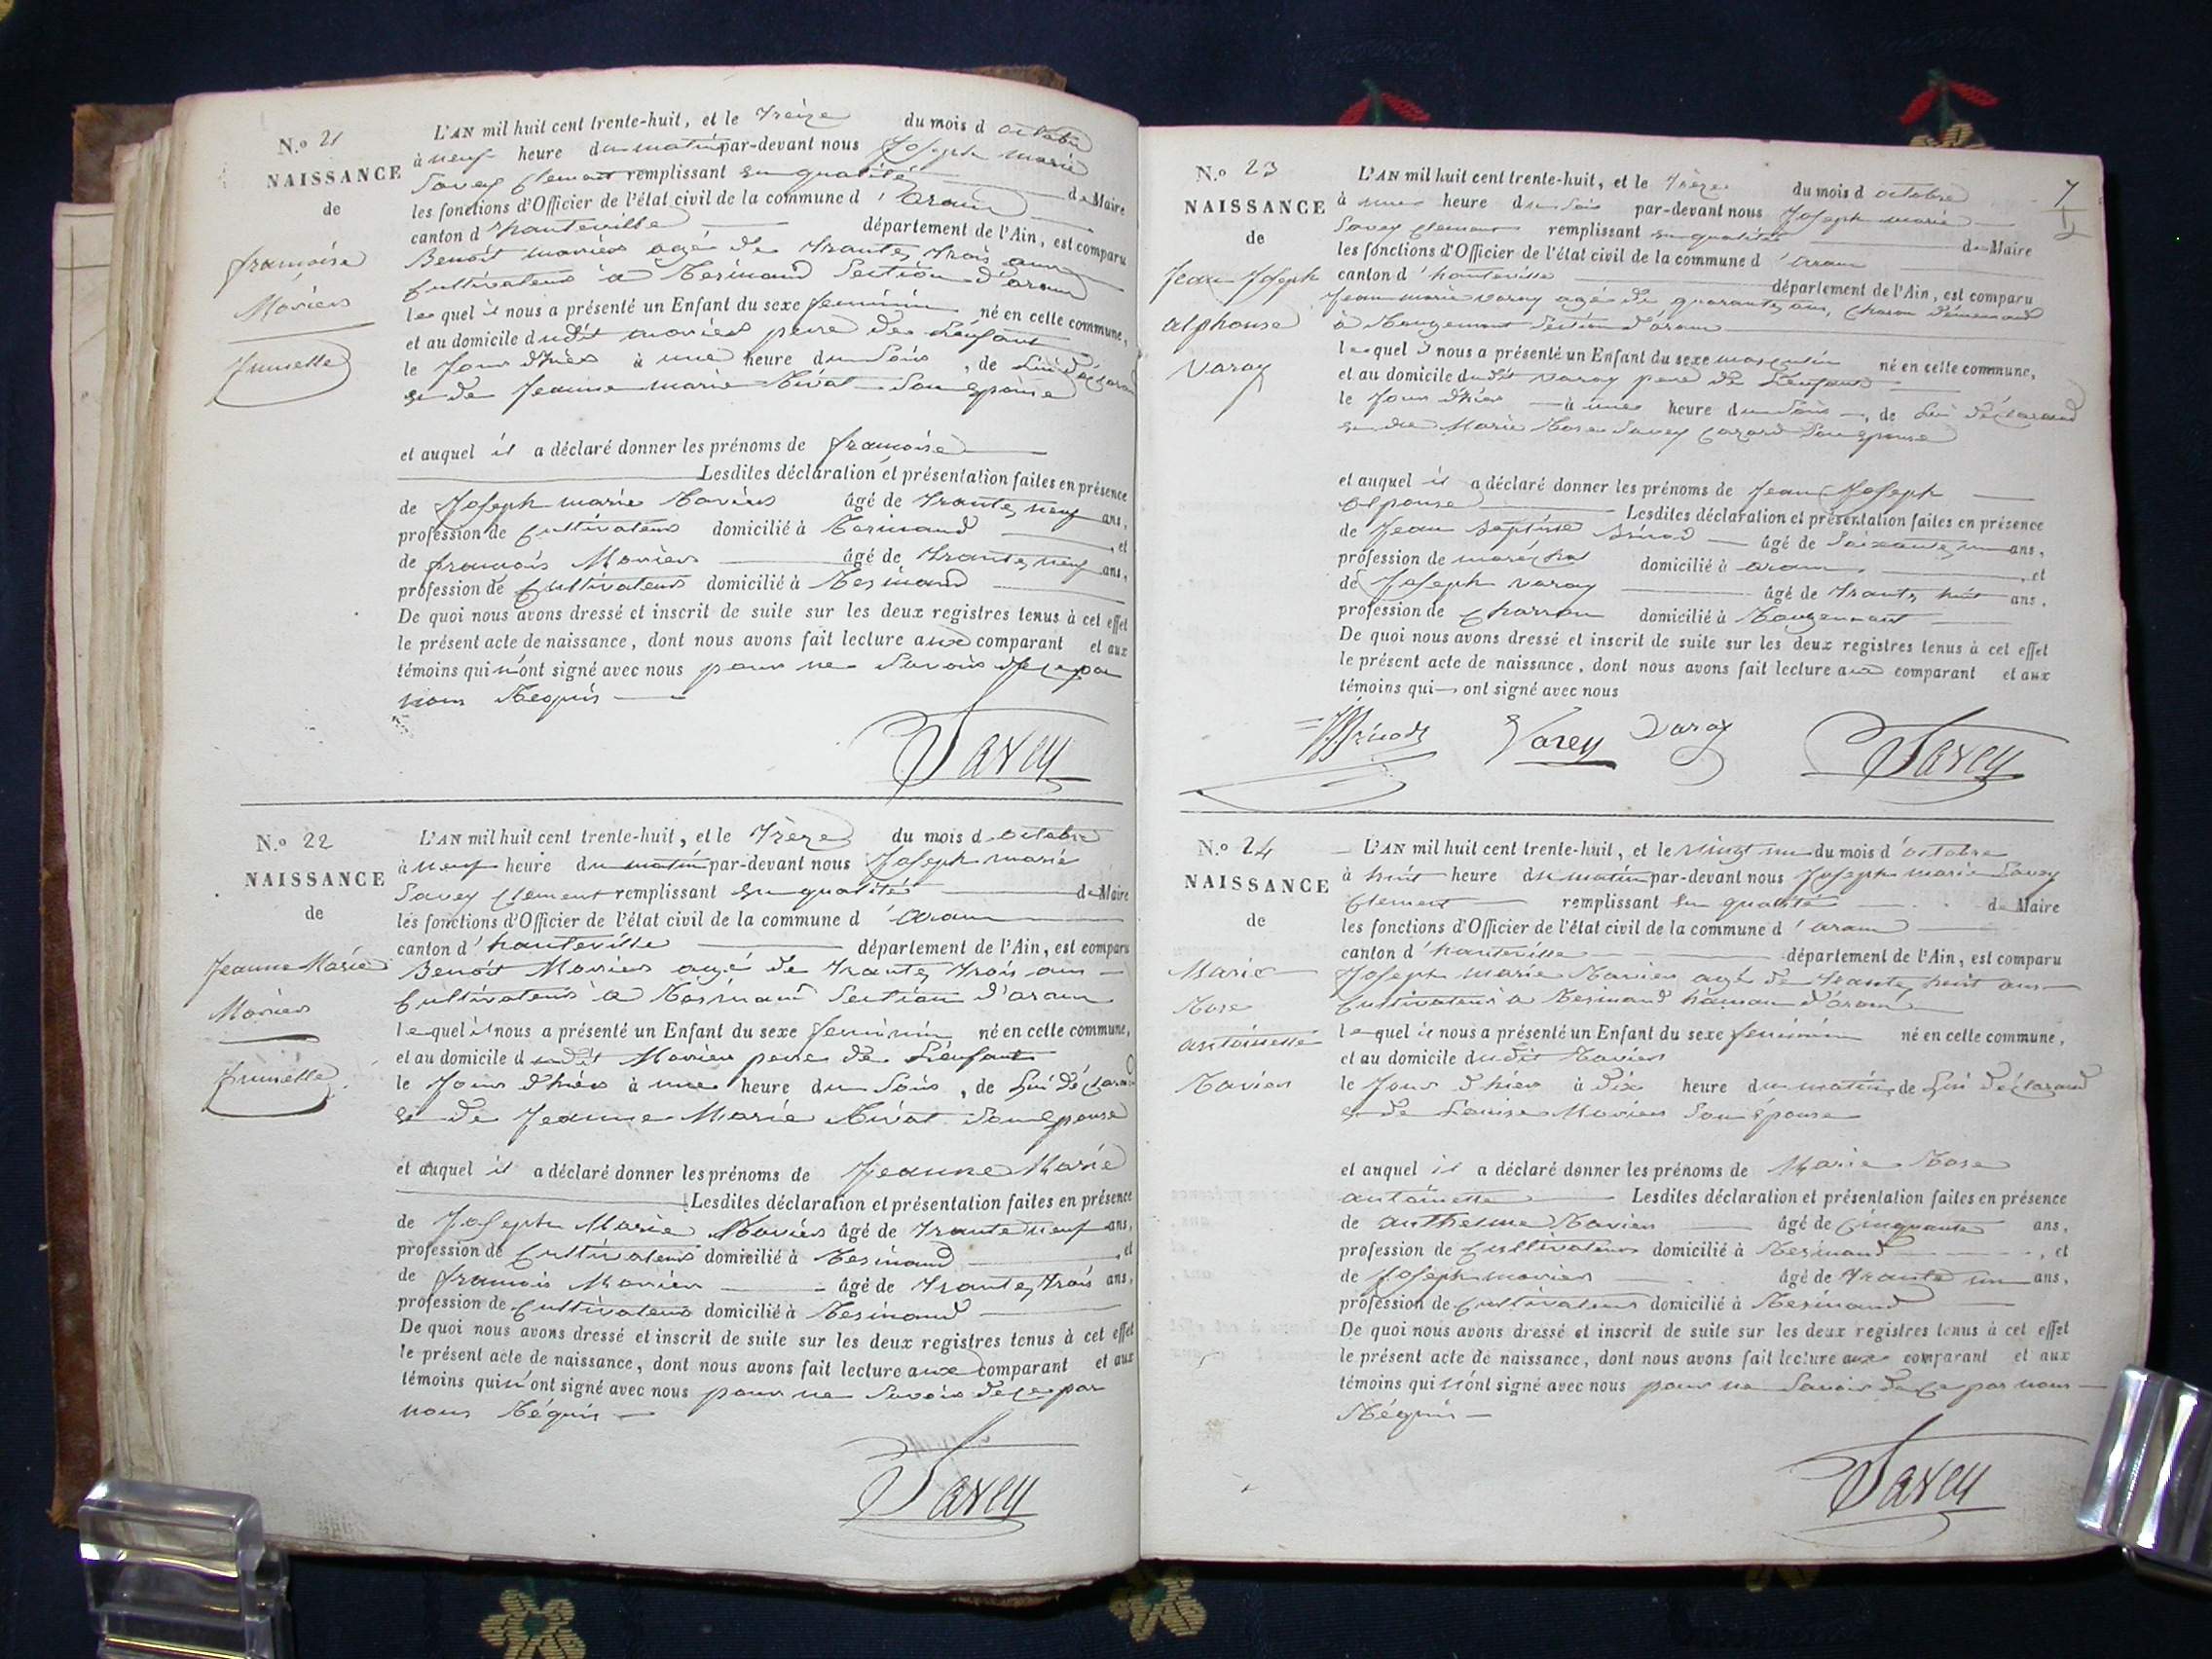 N.o 21
NAISSANCE
de
françoise
Moviers
Jumelle
L'AN mil huit cent trente-huit, et le Treize du mois d octobre
à neuf heure du matin par-devant nous Joseph marie
Savey Clement remplissant en qualité de Maire
les fonctions d'Officier de l'état civil de la commune d' aranc
canton d'hauteville département de l'Ain, est comparu
Benoit moviers agé de trante trois ans
Cultivateur à Resinand Section d'aranc
lequel il nous a présenté un Enfant du sexe feminin né en cette commune,
et au domicile dudit moviers pere de L'enfant
le Jour d'hier à une heure du Soir, de Lui déclarand
et de Jeanne marie Nivat Son epouse
et auquel il a déclaré donner les prénoms de françoise
Lesdites déclaration et présentation faites en présence
de Joseph marie Raviers âgé de trante neuf ans,
profession de Cultivateur domicilié à Resinand, et
de françois Moviers âgé de trante neuf ans,
profession de Cultivateur domicilié à Resinand
De quoi nous avons dressé et inscrit de suite sur les deux registres tenus à cet effet
le présent acte de naissance, dont nous avons fait lecture aux comparant et aux
témoins qui n'ont signé avec nous pour ne Savoir de ce par
nous Requis
Savey
N.o 22
NAISSANCE
de
Jeanne Marie
Moviers
Jumelle
L'AN mil huit cent trente-huit, et le Treze du mois d octobre
à neuf heure du matin par-devant nous Joseph marie
Savey Clement remplissant en qualité de Maire
les fonctions d'Officier de l'état civil de la commune d' aranc
canton d'hauteville département de l'Ain, est comparu
Benoit Moviers agé de trante trois ans
Cultivateur à Resinand Section d'aranc
lequel il nous a présenté un Enfant du sexe feminin né en cette commune,
et au domicile dudit Moviers pere de L'enfant
le Jour d'hier à une heure du Soir, de Lui déclarand
et de Jeanne Marie Nivat Son epouse
et auquel il a déclaré donner les prénoms de Jeanne Marie
Lesdites déclaration et présentation faites en présence
de Joseph Marie Raviers âgé de trante neuf ans,
profession de Cultivateur domicilié à Resinand, et
de françois Moviers âgé de trante trois ans,
profession de Cultivateur domicilié à Resinand
De quoi nous avons dressé et inscrit de suite sur les deux registres tenus à cet effet
le présent acte de naissance, dont nous avons fait lecture aux comparant et aux
témoins qui n'ont signé avec nous pour ne Savoir de ce par
nous Réquis
Savey
7
N.o 23
NAISSANCE
de
Jean Joseph
alphonse
Varay
L'AN mil huit cent trente-huit, et le Treze du mois d octobre
à une heure du Soir par-devant nous Joseph marie
Savey Clement remplissant en qualité de Maire
les fonctions d'Officier de l'état civil de la commune d' aranc
canton d'hauteville département de l'Ain, est comparu
Jean marie varay agé de quarante ans, Charon demeurand
à Rougemont Section d'aranc
lequel il nous a présenté un Enfant du sexe masculin né en cette commune,
et au domicile dudit varay pere de L'enfant
le Jour d'hier à une heure du Soir, de Lui déclarand
et de Marie Rose Savey Son epouse
et auquel il a déclaré donner les prénoms de Jean Joseph
alponse Lesdites déclaration et présentation faites en présence
de Jean baptiste Brinod âgé de Soixante un ans,
profession de maréchal domicilié à aranc, et
de Joseph varay âgé de trante huit ans,
profession de Charron domicilié à Rougemont
De quoi nous avons dressé et inscrit de suite sur les deux registres tenus à cet effet
le présent acte de naissance, dont nous avons fait lecture aux comparant et aux
témoins qui ont signé avec nous
Varey Varay Savey
N.o 24
NAISSANCE
de
Marie
Rose
antoinette
Raviers
L'AN mil huit cent trente-huit, et le vingt un du mois d'octobre
à huit heure du matin par-devant nous Joseph marie Savey
Clement remplissant en qualité de Maire
les fonctions d'Officier de l'état civil de la commune d' aranc
canton d'hauteville département de l'Ain, est comparu
Joseph Marie Raviers agé de trante huit ans
Cultivateur à Resinand hameau d'aranc
lequel il nous a présenté un Enfant du sexe feminin né en cette commune,
et au domicile dudit Raviers
le Jour d'hier à dix heure du matin, de Lui déclarand
et de Louise Moviers Son épouse
et auquel il a déclaré donner les prénoms de Marie Rose
antoinette Lesdites déclaration et présentation faites en présence
de anthelme Raviers âgé de Cinquante ans,
profession de Cultivateur domicilié à Resinand, et
de Joseph moviers âgé de trante un ans,
profession de Cultivateur domicilié à Resinand
De quoi nous avons dressé et inscrit de suite sur les deux registres tenus à cet effet
le présent acte de naissance, dont nous avons fait lecture aux comparant et aux
témoins qui n'ont signé avec nous pour ne Savoir de ce par nous
Réquis
Savey